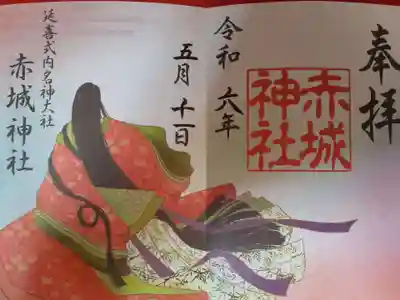 奉拝
赤城
神社
令和 六年
五月 十一日
延喜式内名神大社
赤城神社